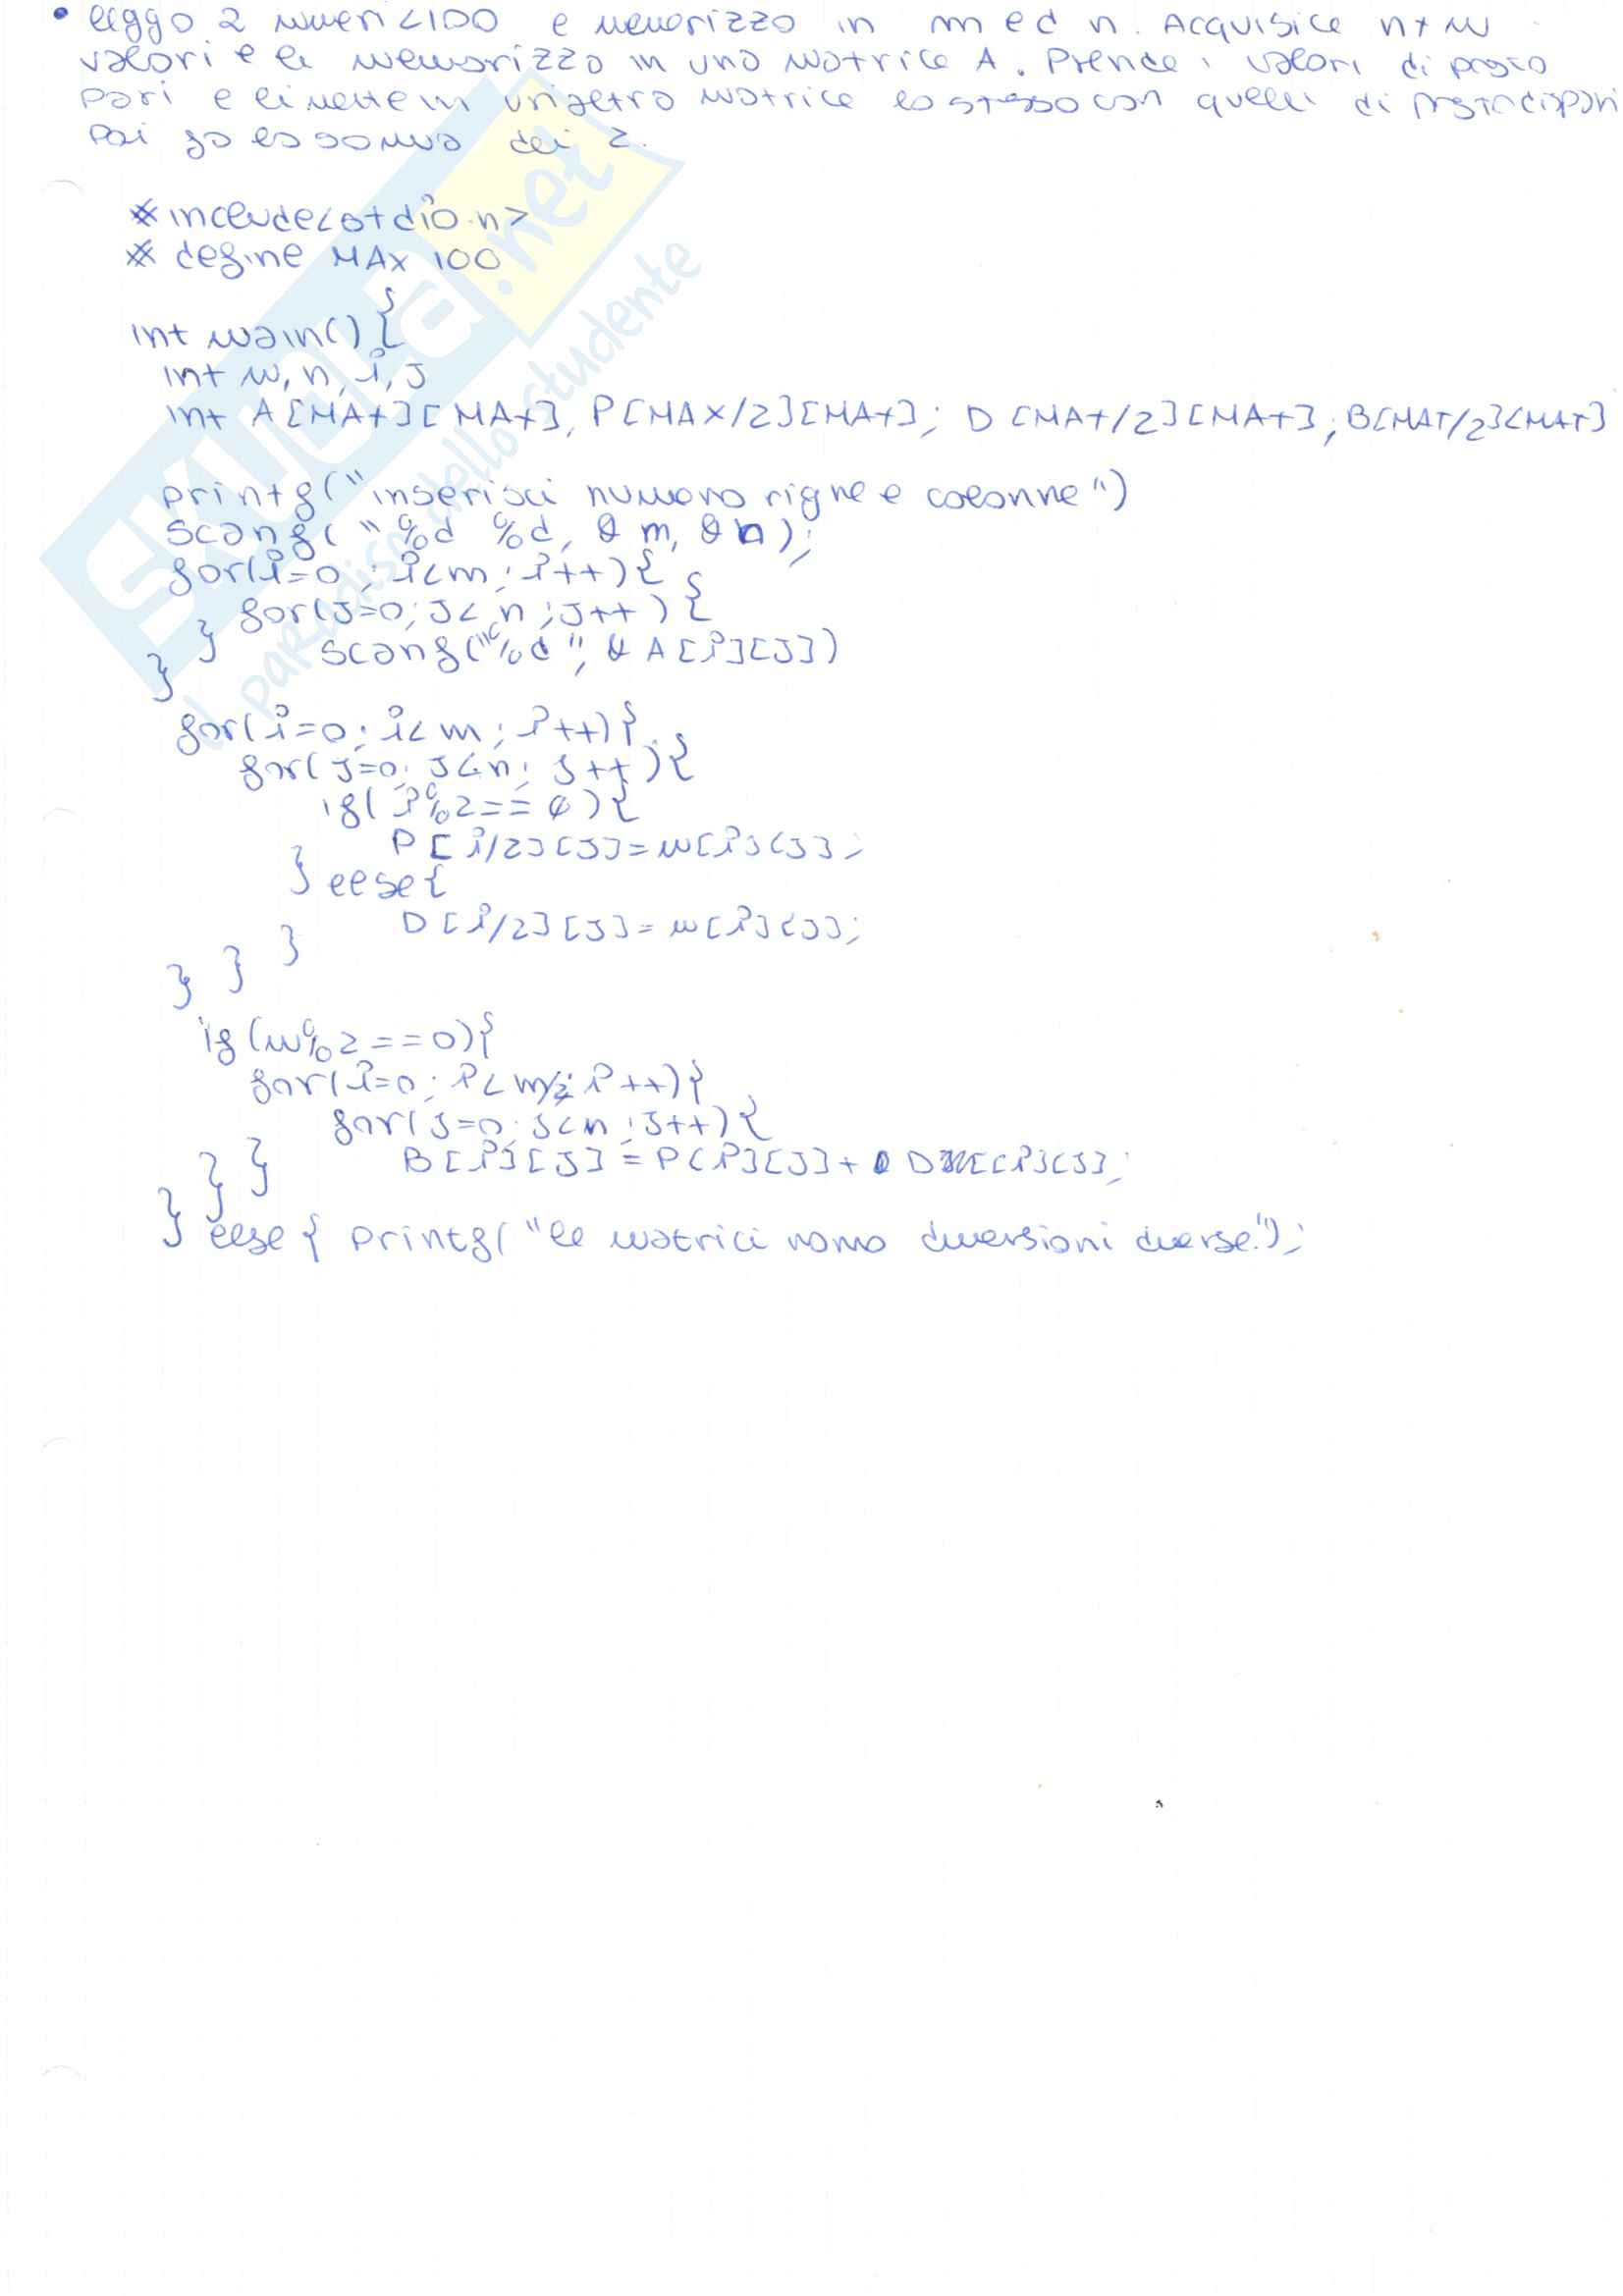 • leggo 2 numeri <100 e memorizzo in m ed n. Acquisice n x m
valori e li memorizzo in una matrice A. Prende i valori di posto
pari e li mette in un'altra matrice lo stesso con quelli di posto dispari
Poi fa la somma dei 2.
# include <stdio.h>
# define MAX 100
int main() {
int m, n, i, j
int A [MAX] [MAX], P [MAX/2] [MAX]; D [MAX/2] [MAX]; B [MAX/2] [MAX]
printf("inserisci numero righe e colonne")
scanf("%d %d, & m, & n);
for(i=0; i<m; i++) {
for(j=0; j<n; j++) {
} scanf("%d", & A [i] [j])
}
for(i=0; i<m; i++) {
for(j=0; j<n; j++) {
if( i%2==0) {
P [i/2] [j] = m [i] [j];
} else {
D [i/2] [j] = m [i] [j];
} } }
if (m%2==0) {
for(i=0; i<m/2; i++) {
for(j=0; j<n; j++) {
} } B [i] [j] = P [i] [j] + D [i] [j];
} else { printf("le matrici hanno dimensioni diverse");
SKUOLA.net
il paradiso dello studente